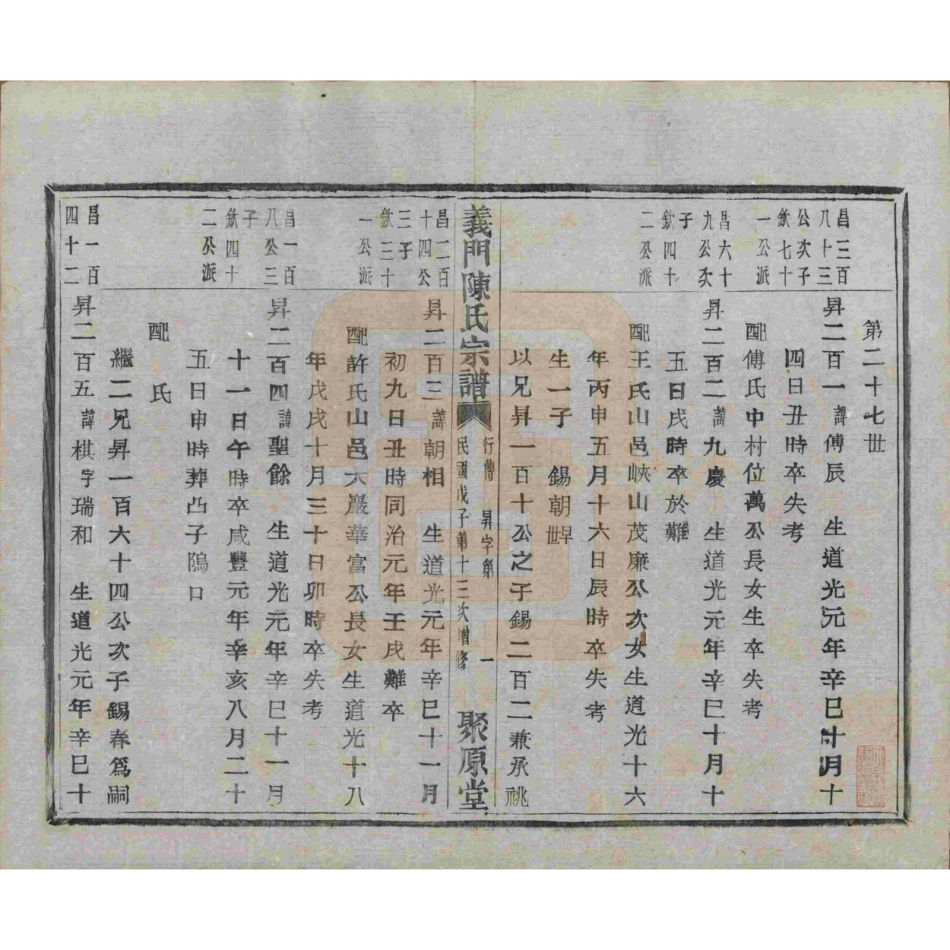 第二十七世
昌三百
八十三
公次子
欽七十
一公派
昇二百一諱傅辰　生道光元年辛巳十月十
四日丑時卒失考
配傅氏中村位萬公長女生卒失考
昌六十
九公次
子
欽四十
二公派
昇二百二諱九慶　生道光元年辛巳十月十
五日戌時卒於難
配王氏山邑峽山茂廉公次女生道光十六
年丙申五月十六日辰時卒失考
生一子　錫朝
以兄昇一百十公之子錫二百二兼承祧
義門陳氏宗譜
行傳　昇字號　一
民國戊子第十三次增修
聚原堂
昌二百
十四公
三子
欽三十
一公派
昇二百三諱朝相　生道光元年辛巳十一月
初九日丑時同治元年壬戌難卒
配許氏山邑大巖華富公長女生道光十八
年戊戌十月三十日卯時卒失考
昌一百
八公三
子
欽四十
二公派
昇二百四諱聖餘　生道光元年辛巳十一月
十一日午時卒咸豐元年辛亥八月二十
五日申時葬凸子隖口
配　氏
繼二兄昇一百六十四公次子錫春為嗣
昌一百
四十二
昇二百五諱棋字瑞和　生道光元年辛巳十